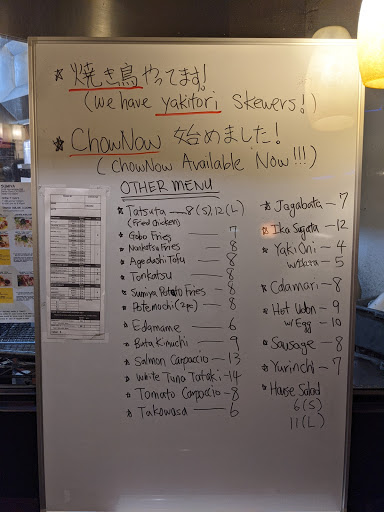 * 焼き鳥やってます!
(We have yakitori skewers!)
* ChowNow 始めました!
(ChowNow Available Now!!!)
OTHER MENU
* Tatsuta — 8(S), 12(L)
(Fried Chicken)
* Gobo Fries — 7
* Nankotsu Fries — 8
* Agedashi Tofu — 8
* Tonkatsu — 8
* Sumiya Potato Fries — 8
* Potemochi (2pc) — 8
* Edamame — 6
* Buta Kimuchi — 9
* Salmon Carpaccio — 13
* White Tuna Tataki — 14
* Tomato Carpaccio — 8
* Takowasa — 6
* Jagabata — 7
* Ika Sugata — 12
* Yaki Oni — 4
w/ Ikura — 5
* Cdamari — 8
* Hot Udon — 9
w/ Egg — 10
* Sausage — 8
* Yurinchi — 7
* House Salad
6 (S)
11 (L)